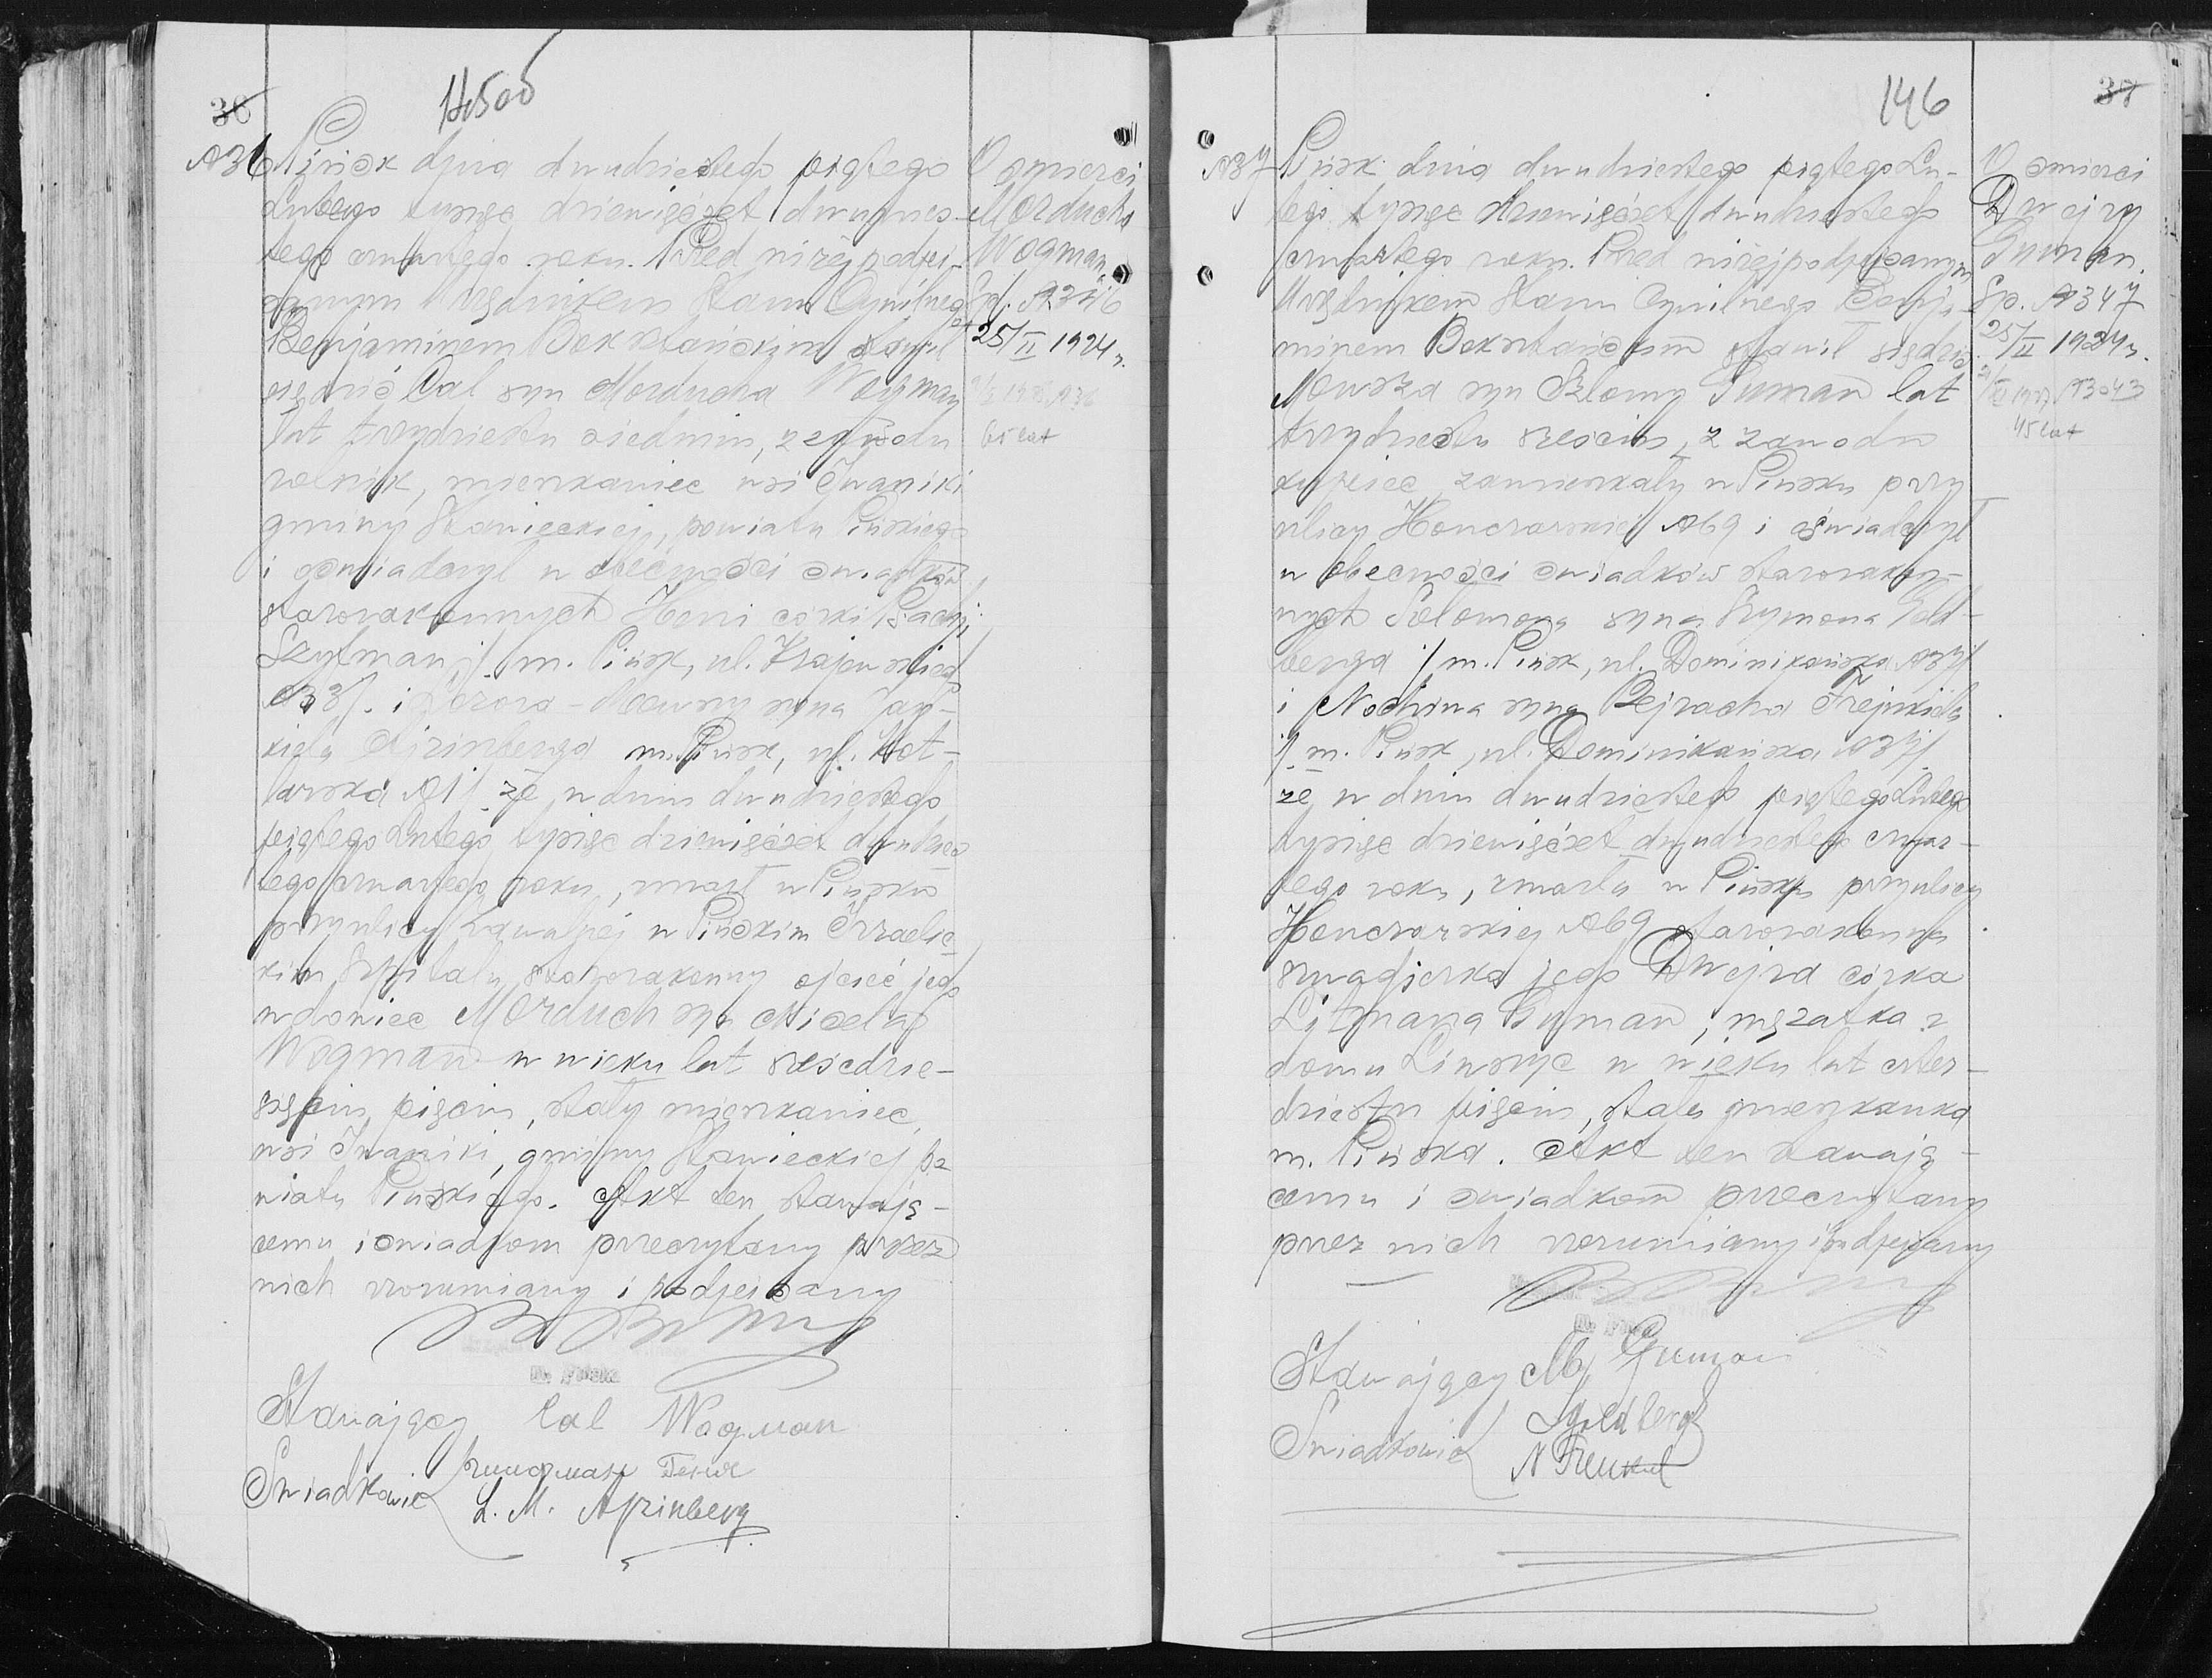 36
14500
№36
Pińsk dnia dwudziestego piątego
Lutego tysiąc dziewięćset dwudzies-
tego czwartego roku. Przed niżej podpi-
sanym Urzędnikem Stanu Cywilnego
Benjaminem Boksztańskim stawił
się dziś Cal syn Morducha Wogman
lat trzydziestu siedmiu, z zawodu
rolnik, mieszkaniec wsi Iwaniki
gminy Stawieckiej, powiatu Pińskiego
i oświadczył w obecności świadków
starozakonnych Heni córki
m. Pińsk, ul. Krajewskiego
№33/. i Lozora-Mowszy syna Jan-
kiela m. Pińsk, ul. Kot-
larska №1/ że w dniu dwudziestego
piątego Lutego tysiąc dziewięćset dwudzies
tego czwartego roku, zmarł w Pińsku
przy ulicy w Pińskim Izraelic
kim Szpitalu starozakonny ojciec jego
wdowiec Morduch syn
Wogman w wieku lat sześcdzie-
sięciu pięciu, stały mieszkaniec
wsi Iwaniki, gminy Stawieckiej po
wiatu Pińskiego. Akt ten stawają-
cemu i świadkom przeczytany przez
nich zrozumiany i podpisany
m. Pińska
Stawający Cal Wogman
Świadkowie
L. M. Ajzinberg
O śmierci
Morducha
Wogman
Sp. №346
25/II 1924 r.
65 lat
37
146
№37
Pińsk dnia dwudziestego piątego Lu-
tego tysiąc dziewięćset dwudziestego
czwartego roku. Przed niżej podpisanym
Urzędnikem Stanu Cywilnego Benja-
minem Boksztańskim stawił się dziś
Mowsza syn Szlomy Guman lat
trzydziestu sześciu, z zawodu
kupiec zamieszkały w Pińsku przy
ulicy Honczarskiej №69 i oświadczył
w obecności świadków starozakon-
nych Szlomona syna Szymona Gold-
berga /m. Pińsk, ul. Dominikańska
i Nochima syna Bejracha Frejnkiela
/m. Pińsk, ul. Dominikańska
że w dniu dwudziestego piątego Lutego
tysiąc dziewięćset dwudziestego czwar-
tego roku, zmarła w Pińsku przy ulicy
Honczarskiej №69 starozakonna
szwagierka jego Dwejra córka
Guman, mężatka z
domu w wieku lat czter-
dziestu pięciu, stała mieszkanka
m. Pińska. Akt ten stawają-
cemu i świadkom przeczytany
przez nich zrozumiany i podpisany
Stawający M Guman
Świadkowie Goldberg
N Frenkel
O śmierci
Dwejry
Guman.
Sp. №347
25/II 1924 r.
45 lat